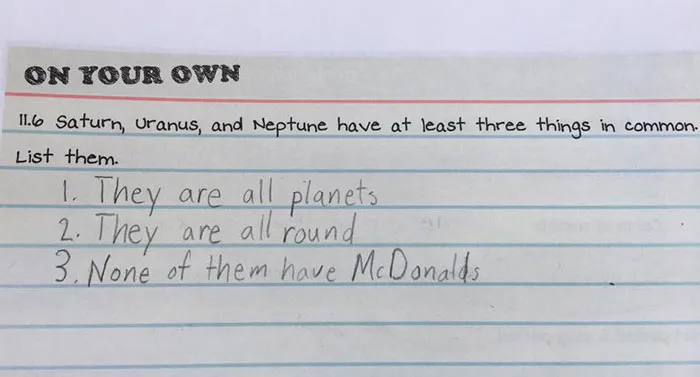 ON YOUR OWN
11.6 Saturn, Uranus, and Neptune have at least three things in common.
List them.
1. They are all planets
2. They are all round
3. None of them have McDonalds